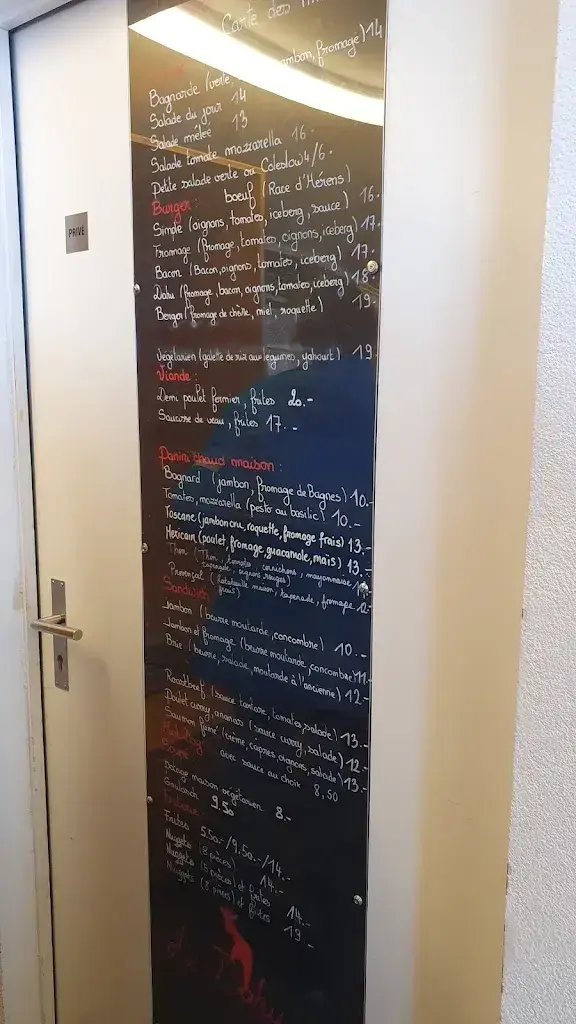 Carte des
Bagnarde (verte, jambon, fromage) 14
Salade du jour 14
Salade mêlée 13
Salade tomate mozzarella 16.-
Petite salade verte ou Coleslow 4/6.-
Burger: boeuf (Race d'Hérens)
Simple (oignons, tomates, iceberg, sauce) 16.-
Fromage (fromage, tomates, oignons, iceberg) 17.-
Bacon (Bacon, oignons, tomates, iceberg) 17.-
Dahu (fromage, bacon, oignons, tomates, iceberg) 18.-
Berger (fromage de chèvre, miel, roquette) 19.-
Végétarien (galette de riz aux légumes, yahourt) 19.-
Viande:
Demi poulet fermier, frites 20.-
Saucisse de veau, frites 17.-
Panini chaud maison:
Bagnard (jambon, fromage de Bagnes) 10.-
Tomates, mozzarella (pesto au basilic) 10.-
Toscane (jambon cru, roquette, fromage frais) 13.-
Mexicain (poulet, fromage, guacamole, maïs) 13.-
Thon (Thon, tomates, cornichons, mayonnaise,
tapenade, oignons rouges)
Provençal (ratatouille maison, tapenade, fromage
frais) 12.-
Sandwich
Jambon (beurre moutarde, concombre) 10.-
Jambon et fromage (beurre moutarde, concombre) 11.-
Brie (beurre, salade, moutarde à l'ancienne) 12.-
Roastbeef (sauce tartare, tomates, salade) 13.-
Poulet curry, ananas (sauce curry, salade) 12.-
Saumon fumé (crème, câpres, oignons, salade) 13.-
Hot Dog avec sauce au choix 8,50
Soupe
Potage maison végétarien 8.-
Goulasch 9.50
Frites 5.50.-/9.50.-/14.-
Nuggets (8 pièces) 14.-
Nuggets (5 pièces) et frites 14.-
Nuggets (8 pièces) et frites 19.-
Le Dahu
PRIVÉ